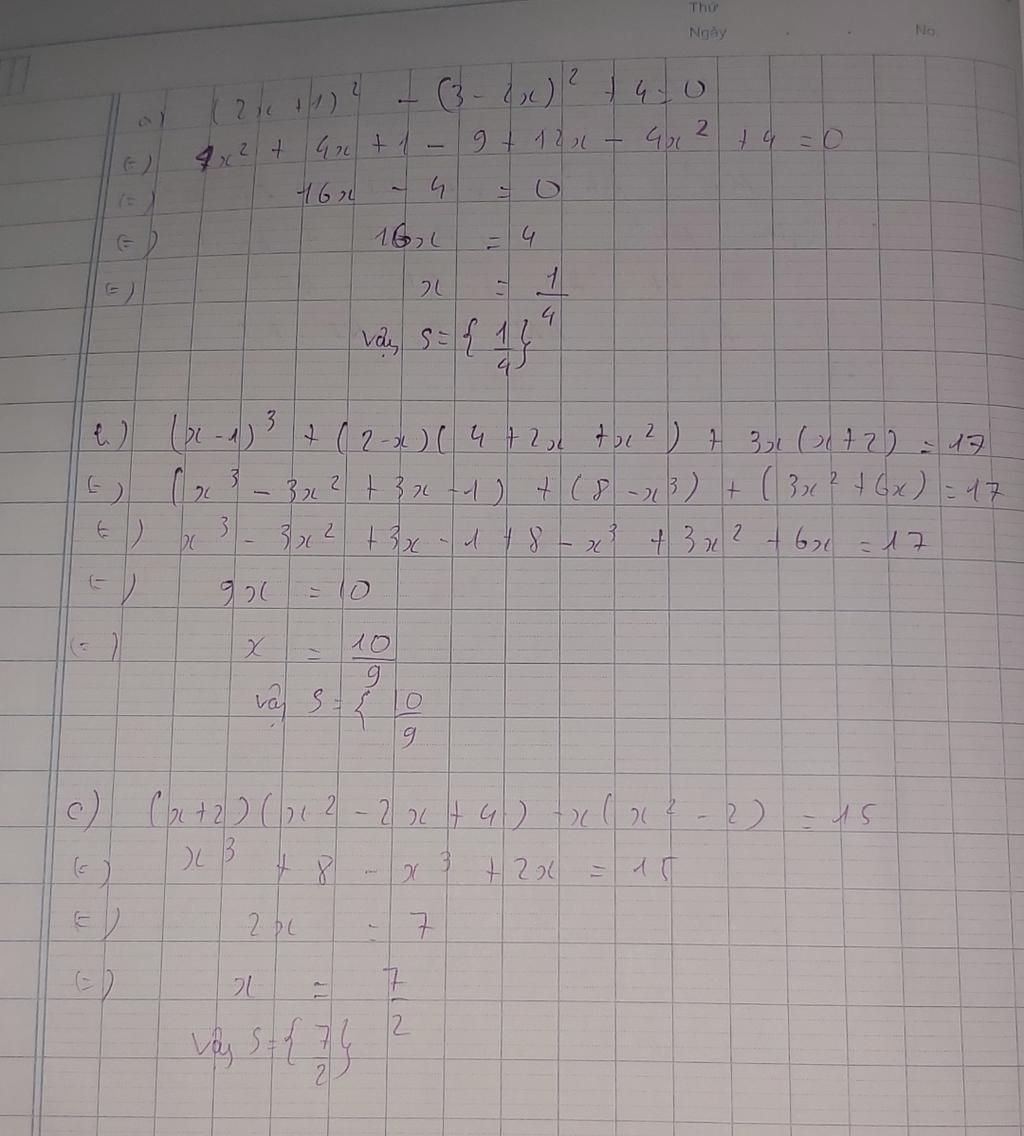 Thứ
Ngày . . No.
a) (2x + 1)² - (3 - 2x)² + 4 = 0
(=) 4x² + 4x + 1 - 9 + 12x - 4x² + 4 = 0
(=) 16x - 4 = 0
(=) 16x = 4
(=) x = 1/4
Vậy S = { 1/4 }
b.) (x - 1)³ + (2 - x)( 4 + 2x + x² ) + 3x (x + 2) = 17
(=) (x³ - 3x² + 3x - 1) + (8 - x³) + (3x² + 6x) = 17
(=) x³ - 3x² + 3x - 1 + 8 - x³ + 3x² + 6x = 17
(=) 9x = 10
(=) x = 10/9
vậy S = { 10/9
c) (x + 2)(x² - 2x + 4) - x( x² - 2) = 15
(=) x³ + 8 - x³ + 2x = 15
(=) 2x = 7
(=) x = 7/2
Vậy S = { 7/2 }